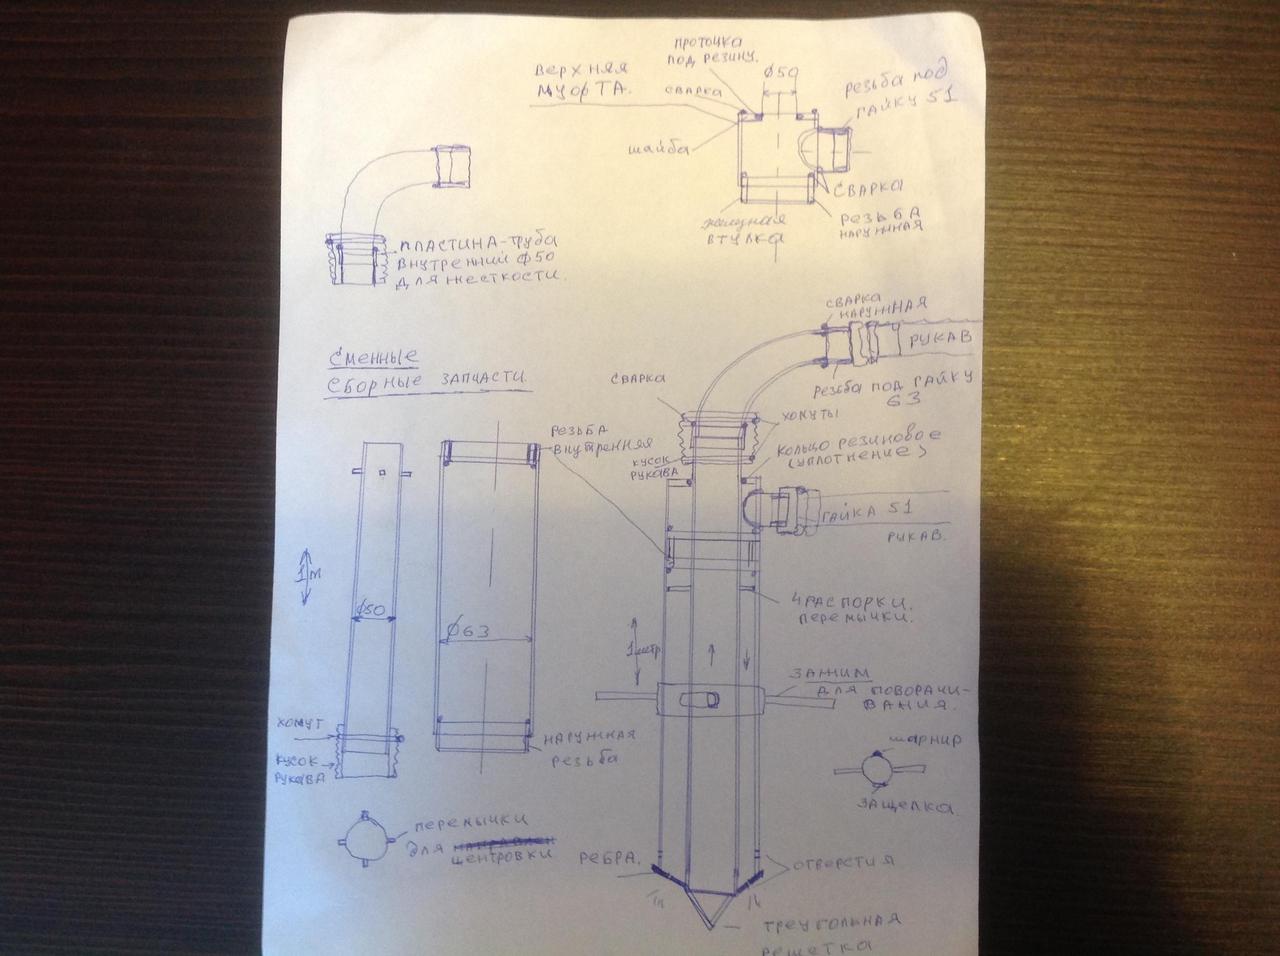 проточка
под резину.
ф50
верхняя
муорта.
сварка
резьба под
гайку 51
шайба
сварка
втулка
резьба
наружная
пластина-труба
внутренний ф50
для жесткости.
сварка
наружная
рукав
резьба под гайку
63
Сменные
сборные запчасти.
сварка
хомуты
резьба
внутренняя
кусок
рукава
кольцо резиновое
(уплотнение)
гайка 51
рукав.
1 м
ф50
ф63
4 распорки.
перемычки.
1 метр.
зажим
для поворачи-
вания.
хомут
кусок
рукава
наружная
резьба
шарнир
защелка.
перемычки
для направлен
центровки.
ребра.
отверстия
треугольная
решетка